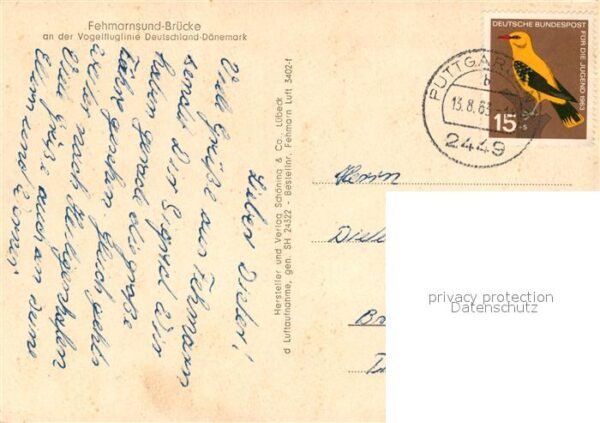 Fehmarnsund-Brücke
an der Vogelfluglinie Deutschland-Dänemark
Lieber Dieter!
Viele Grüße aus Fehmarn
sendet Dir Sigrid. Wir
haben gerade die große
Fähre gesehen. Gleich geht's
weiter nach Heiligenhafen
Viele Grüße auch an Deine
Eltern und
Hersteller und Verlag Schöning & Co., Lübeck
d Luftaufnahme, gen. SH 24322 - Bestellnr. Fehmarn Luft 3402-f
DEUTSCHE BUNDESPOST
FÜR DIE JUGEND 1963
15
+5
PUTTGARDEN
b
13.8.63
2449
Herrn
privacy protection
Datenschutz